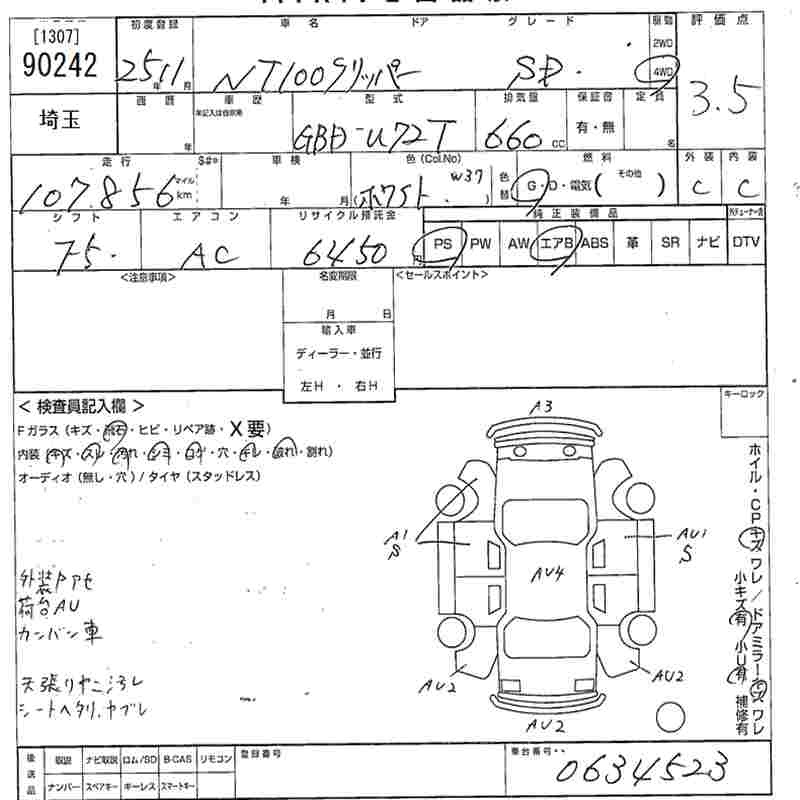 初度登録 車名 ドア グレード 駆動 評価点
[1307]
90242
25 11 年 月
NT100クリッパー
SD
2WD
4WD
3.5
埼玉
西暦 車歴 型式 排気量 保証書 定員
年
未記入は自家用
GBD-U72T
660 cc
有・無
名
走行 $#* 車検 色(Col.No) 燃料 外装 内装
107,856 マイル km
年 月
ホワイト W37
色替
G・D・電気( その他 )
C C
シフト エアコン リサイクル預託金 純正装備品
F5.
AC
6450 円
PS PW AW エアB ABS 革 SR ナビ DTV
<注意事項>
名変期限
月 日
<セールスポイント>
輸入車
ディーラー・並行
左H ・ 右H
< 検査員記入欄 >
Fガラス(キズ・飛石・ヒビ・リペア跡・X要)
内装(キズ・スレ・汚れ・シミ・コゲ・穴・キレ・破れ・割れ)
オーディオ(無し・穴)/タイヤ(スタッドレス)
キーロック
A3
A1
S
AU1
S
AU4
AU2
AU2
AU2
外装PアE
荷台AU
カンバン車
天張りヤニ汚レ
シートヘタリ、ヤブレ
ホイル・CPキズワレ/ドアミラーキズワレ
小キズ有 小U有 補修有
後送品
取説 ナビ取説 ロム/SD B-CAS リモコン
ナンバー スペアキー キーレス スマートキー
登録番号
車台番号
0634523